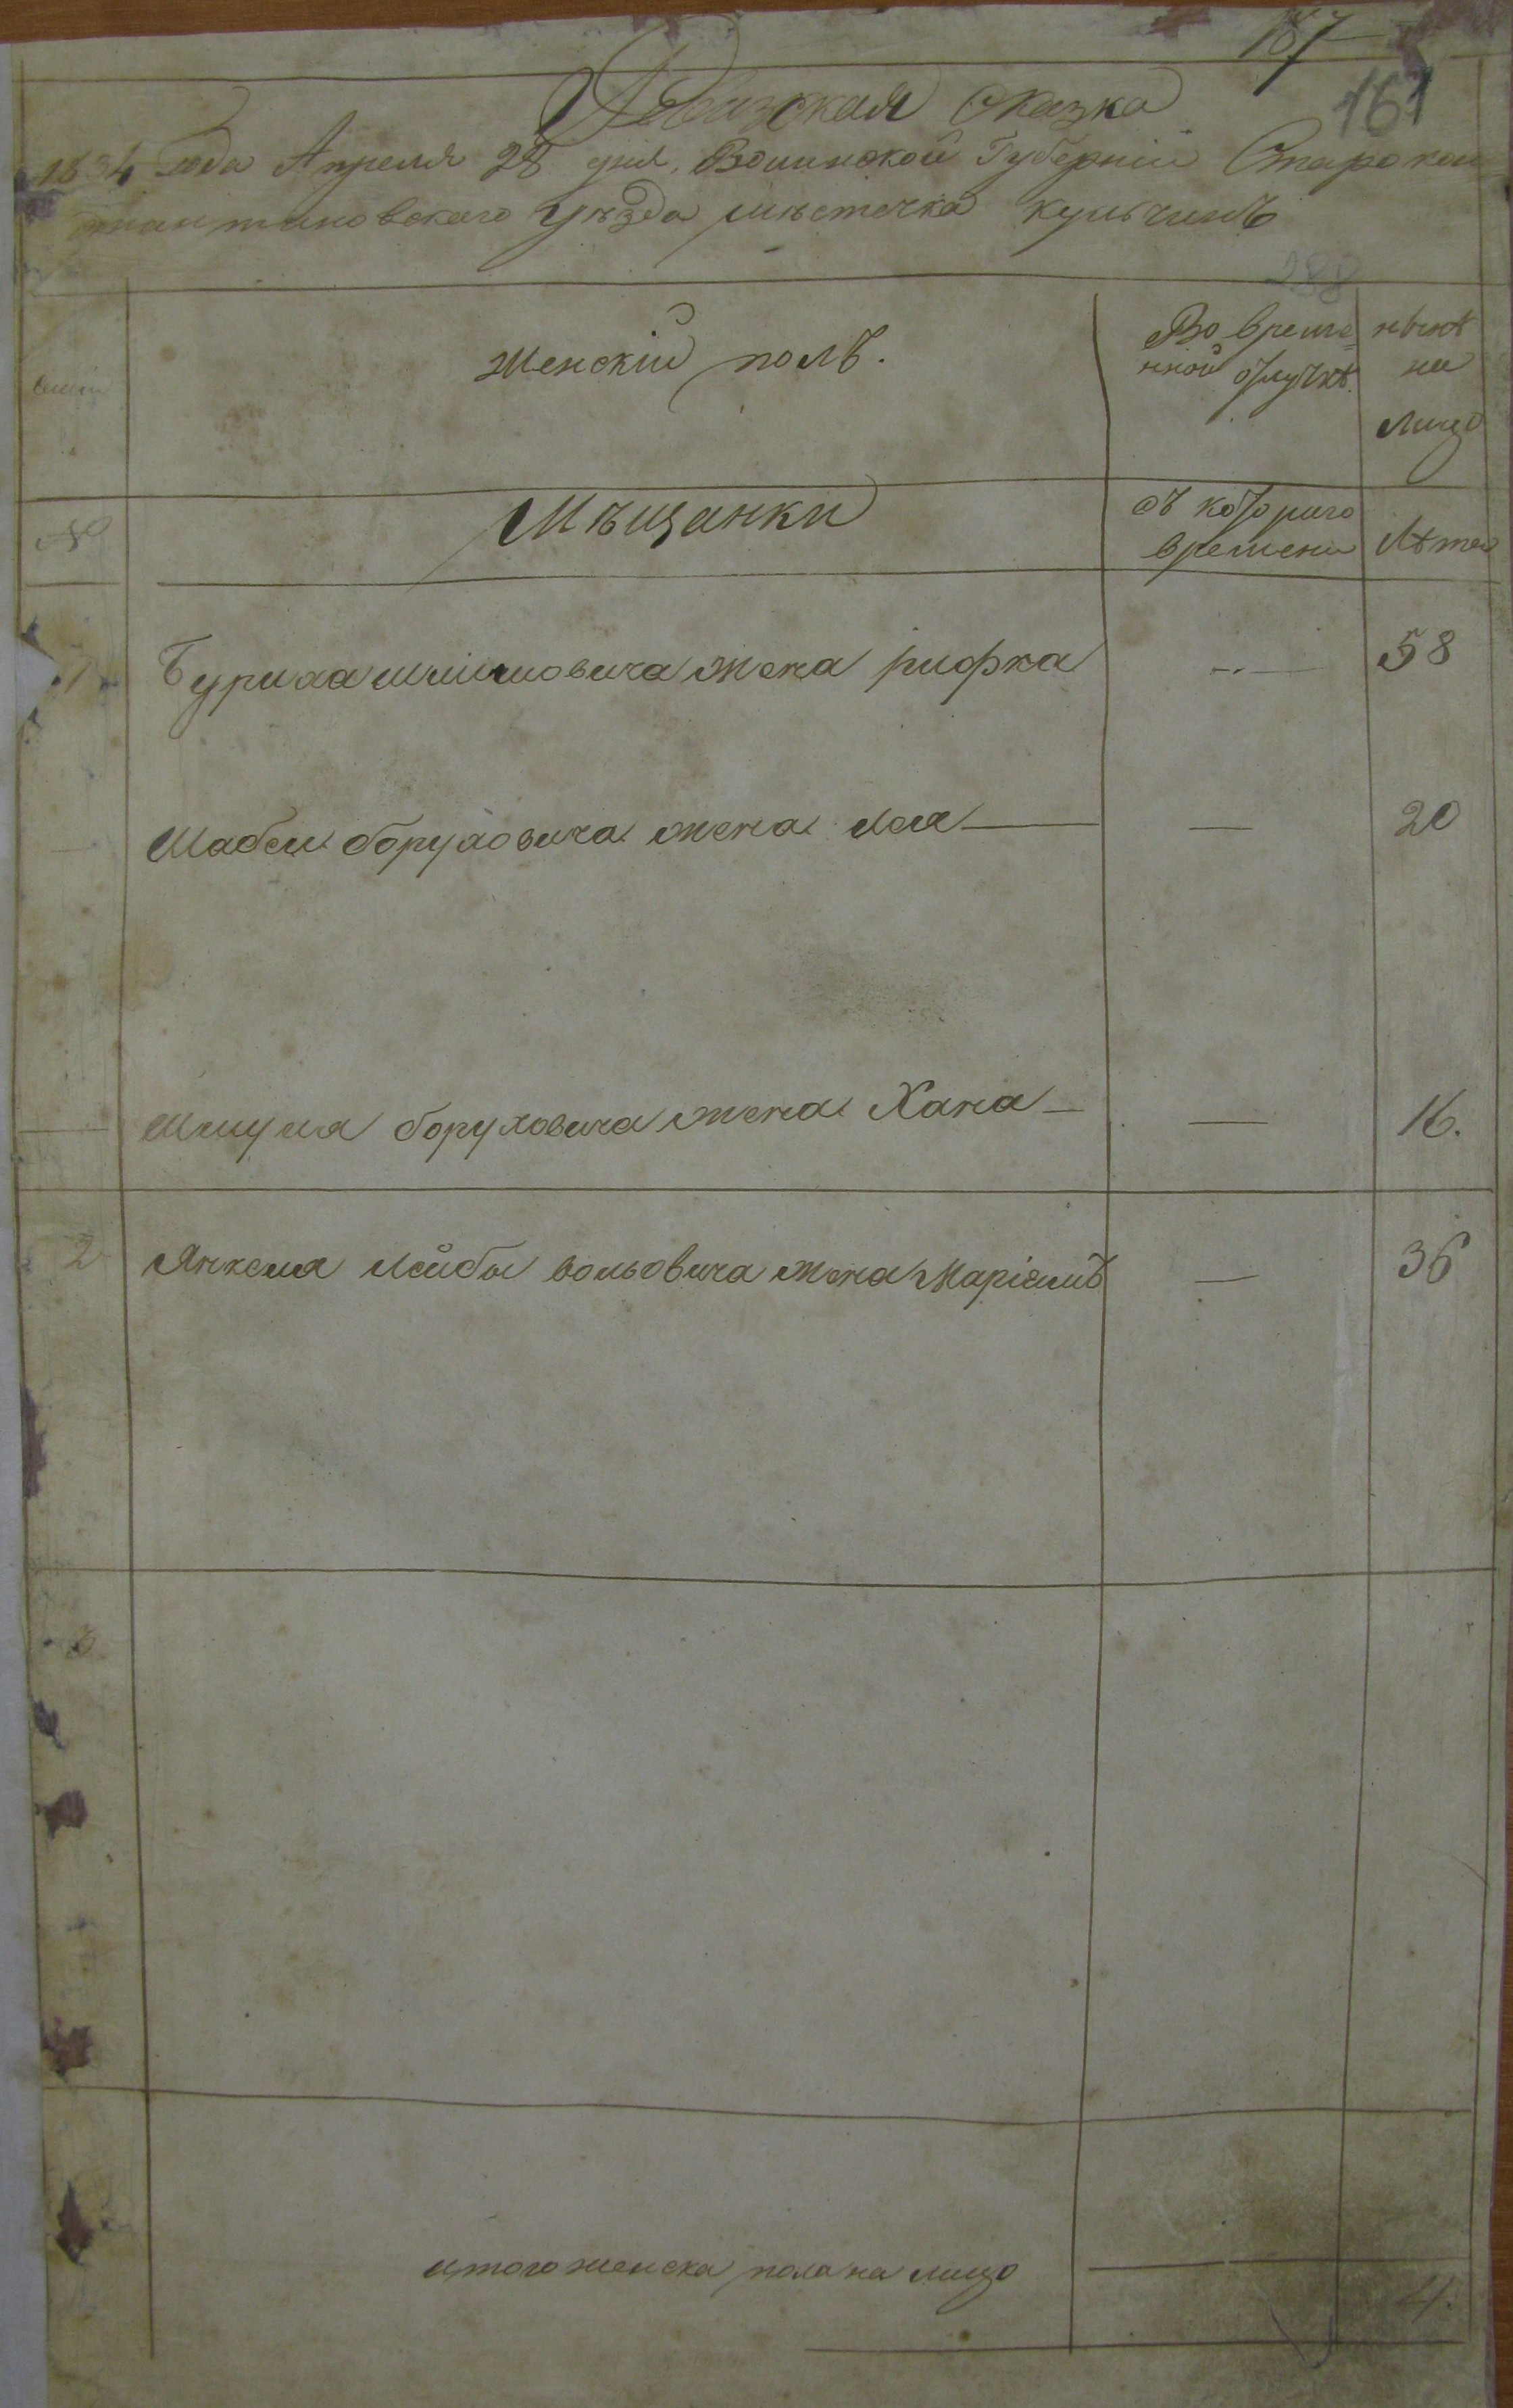 187
161
Ревизская сказка
1834 года Апреля 28 дня, Волинской Губерніи Старокон
стантиновского уѣзда мѣстечка кульчинъ
288
женскій полъ.
Во време
нной отлучкѣ.
нынѣ
на
лицо
№
Мѣщанки
съ которого
времени
Лѣта
1
Буриха шлиомовича жена рифка
58
Шабси боруховича жена лея
20
Шмуля боруховича жена Хана
16.
2
Янкеля Лейбы вольовича жена Маріамъ
36
3
итого женска пола на лицо
4.